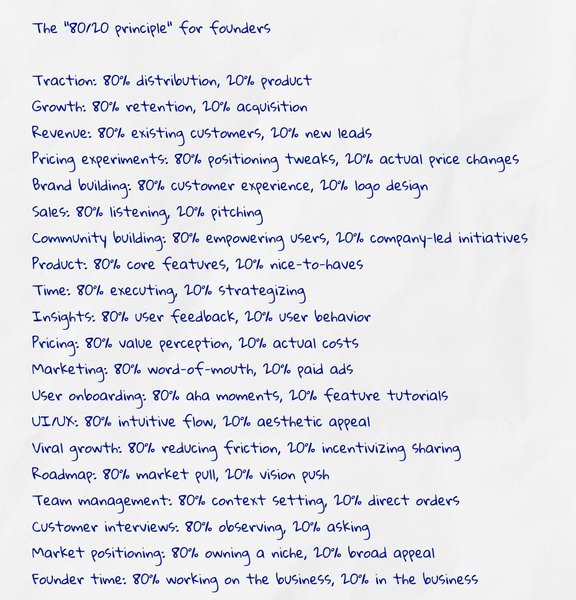 The "80/20 principle" for founders
Traction: 80% distribution, 20% product
Growth: 80% retention, 20% acquisition
Revenue: 80% existing customers, 20% new leads
Pricing experiments: 80% positioning tweaks, 20% actual price changes
Brand building: 80% customer experience, 20% logo design
Sales: 80% listening, 20% pitching
Community building: 80% empowering users, 20% company-led initiatives
Product: 80% core features, 20% nice-to-haves
Time: 80% executing, 20% strategizing
Insights: 80% user feedback, 20% user behavior
Pricing: 80% value perception, 20% actual costs
Marketing: 80% word-of-mouth, 20% paid ads
User onboarding: 80% aha moments, 20% feature tutorials
UI/UX: 80% intuitive flow, 20% aesthetic appeal
Viral growth: 80% reducing friction, 20% incentivizing sharing
Roadmap: 80% market pull, 20% vision push
Team management: 80% context setting, 20% direct orders
Customer interviews: 80% observing, 20% asking
Market positioning: 80% owning a niche, 20% broad appeal
Founder time: 80% working on the business, 20% in the business